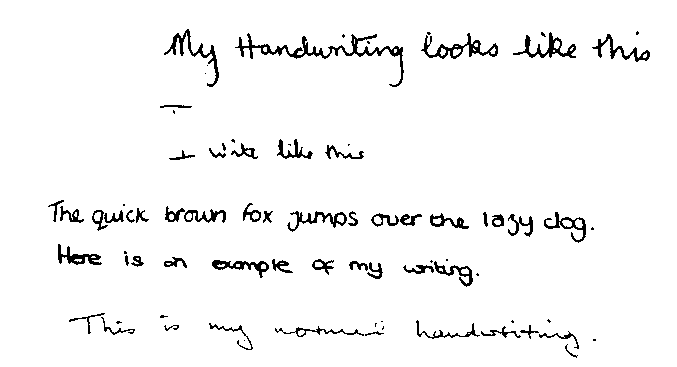 My Handwriting looks like this
I
I write like this
The quick brown fox jumps over the lazy dog.
Here is an example of my writing.
This is my normal handwriting.